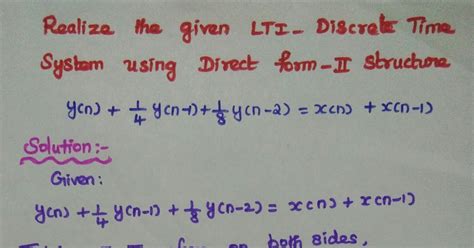 Realize the given LTI- Discrete Time
System using Direct form-II Structure
y(n) + 1/4 y(n-1) + 1/8 y(n-2) = x(n) + x(n-1)
Solution:-
Given:
y(n) + 1/4 y(n-1) + 1/8 y(n-2) = x(n) + x(n-1)
on both sides,